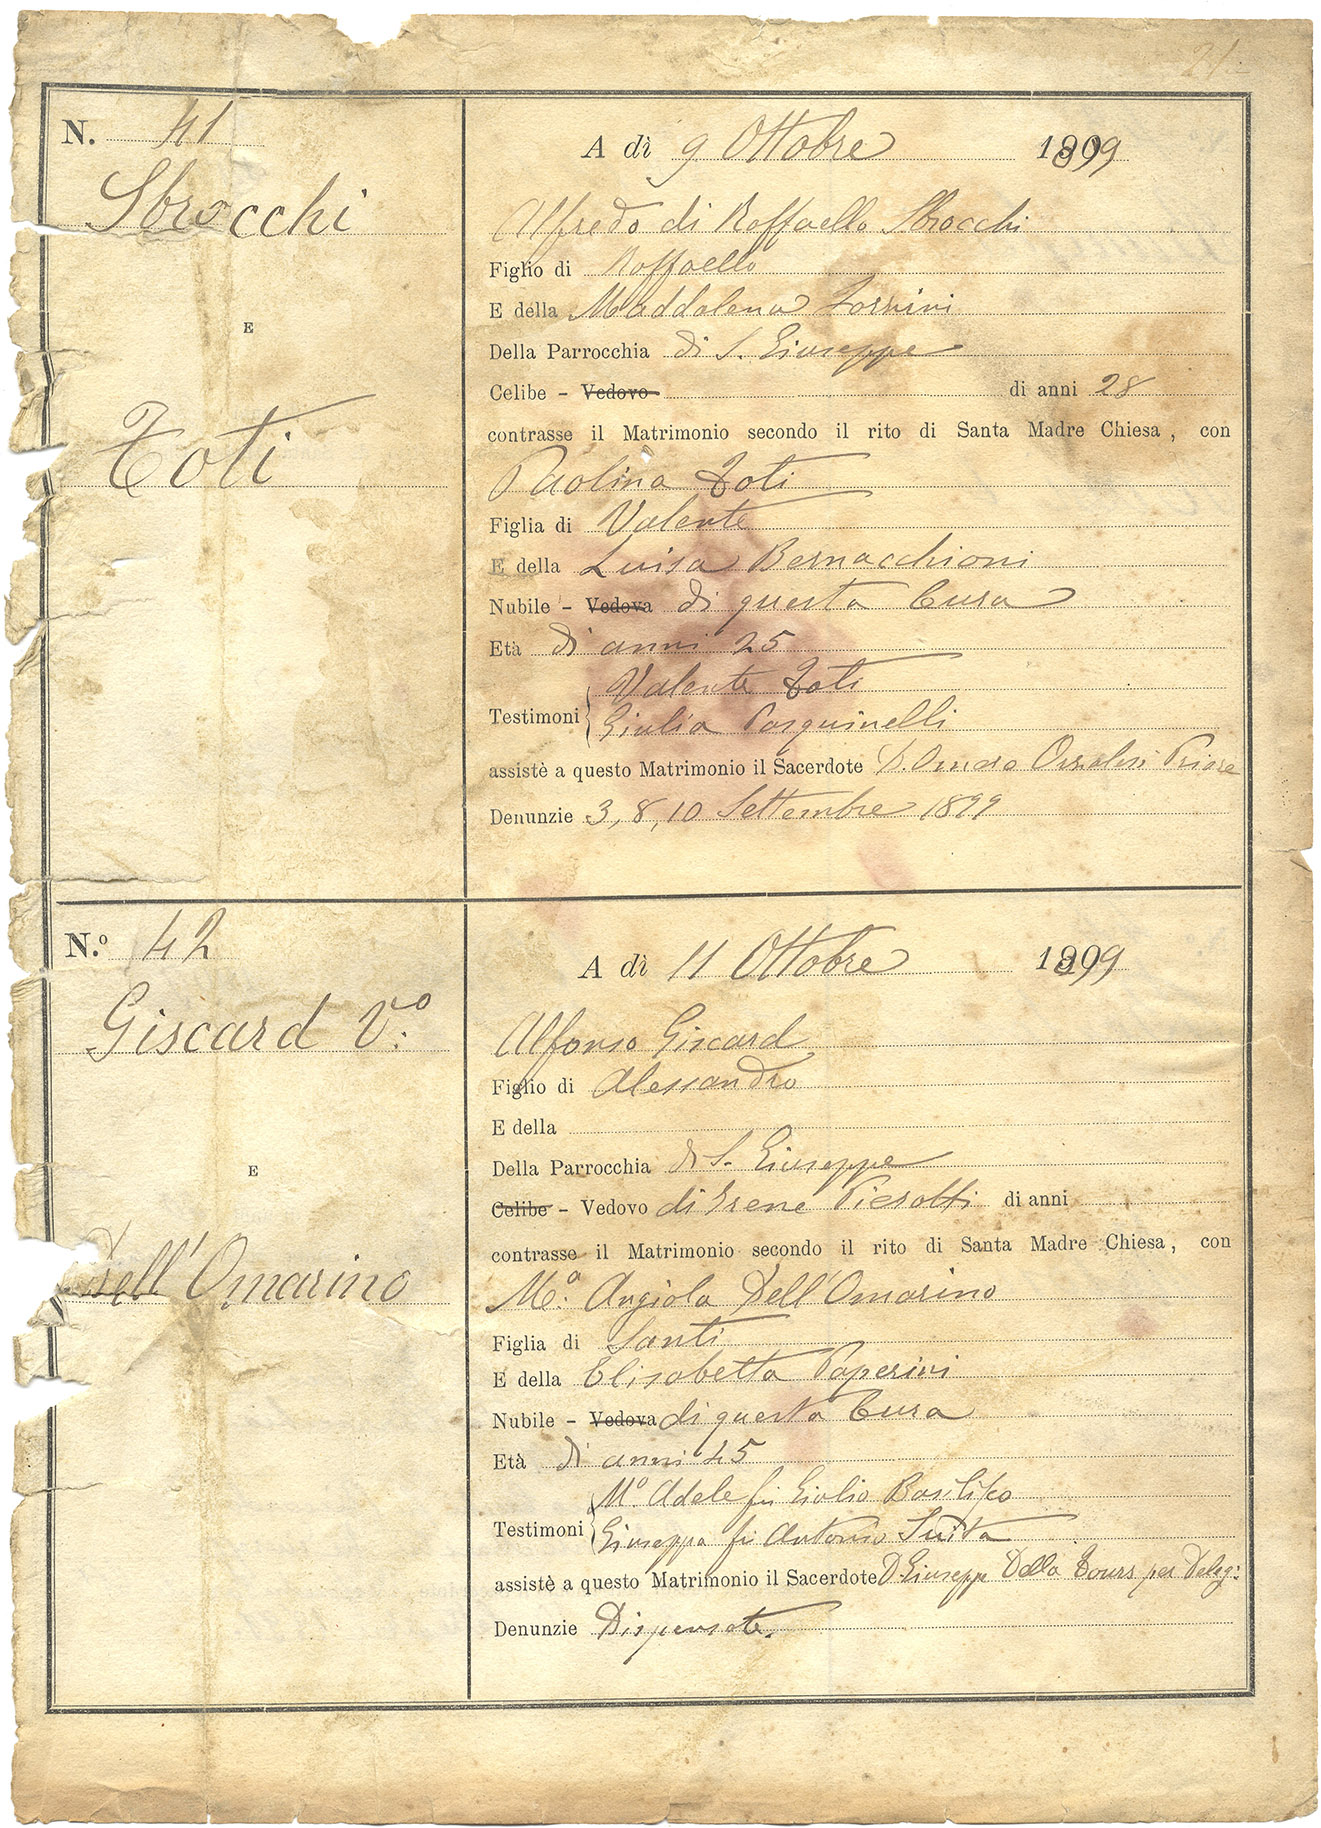 21
N. 41
Sbrocchi
E
Toti
A dì 9 Ottobre 1899
Alfredo di Raffaello Sbrocchi
Figlio di Raffaello
E della Maddalena
Della Parrocchia di S. Giuseppe
Celibe - Vedovo di anni 28
contrasse il Matrimonio secondo il rito di Santa Madre Chiesa, con
Paolina Toti
Figlia di Valente
E della Luisa Bernacchioni
Nubile - Vedova di questa Cura
Età di anni 25
Valente Toti
Testimoni
Giulia Pasquinelli
assistè a questo Matrimonio il Sacerdote D. Priore
Denunzie 3, 8, 10 Settembre 1899
N.º 42
Giscard V.º
E
Dell' Omarino
A dì 11 Ottobre 1899
Alfonso Giscard
Figlio di Alessandro
E della
Della Parrocchia di S. Giuseppe
Celibe - Vedovo di Irene Pierotti di anni
contrasse il Matrimonio secondo il rito di Santa Madre Chiesa, con
M.ª Angiola Dell' Omarino
Figlia di Santi
E della Elisabetta Paperini
Nubile - Vedova di questa Cura
Età di anni 45
Mº. Adele fu Giulio Basilisco
Testimoni
Giuseppa fu Antonio
assistè a questo Matrimonio il Sacerdote D. Giuseppe Della per Deleg:
Denunzie Dispensate.